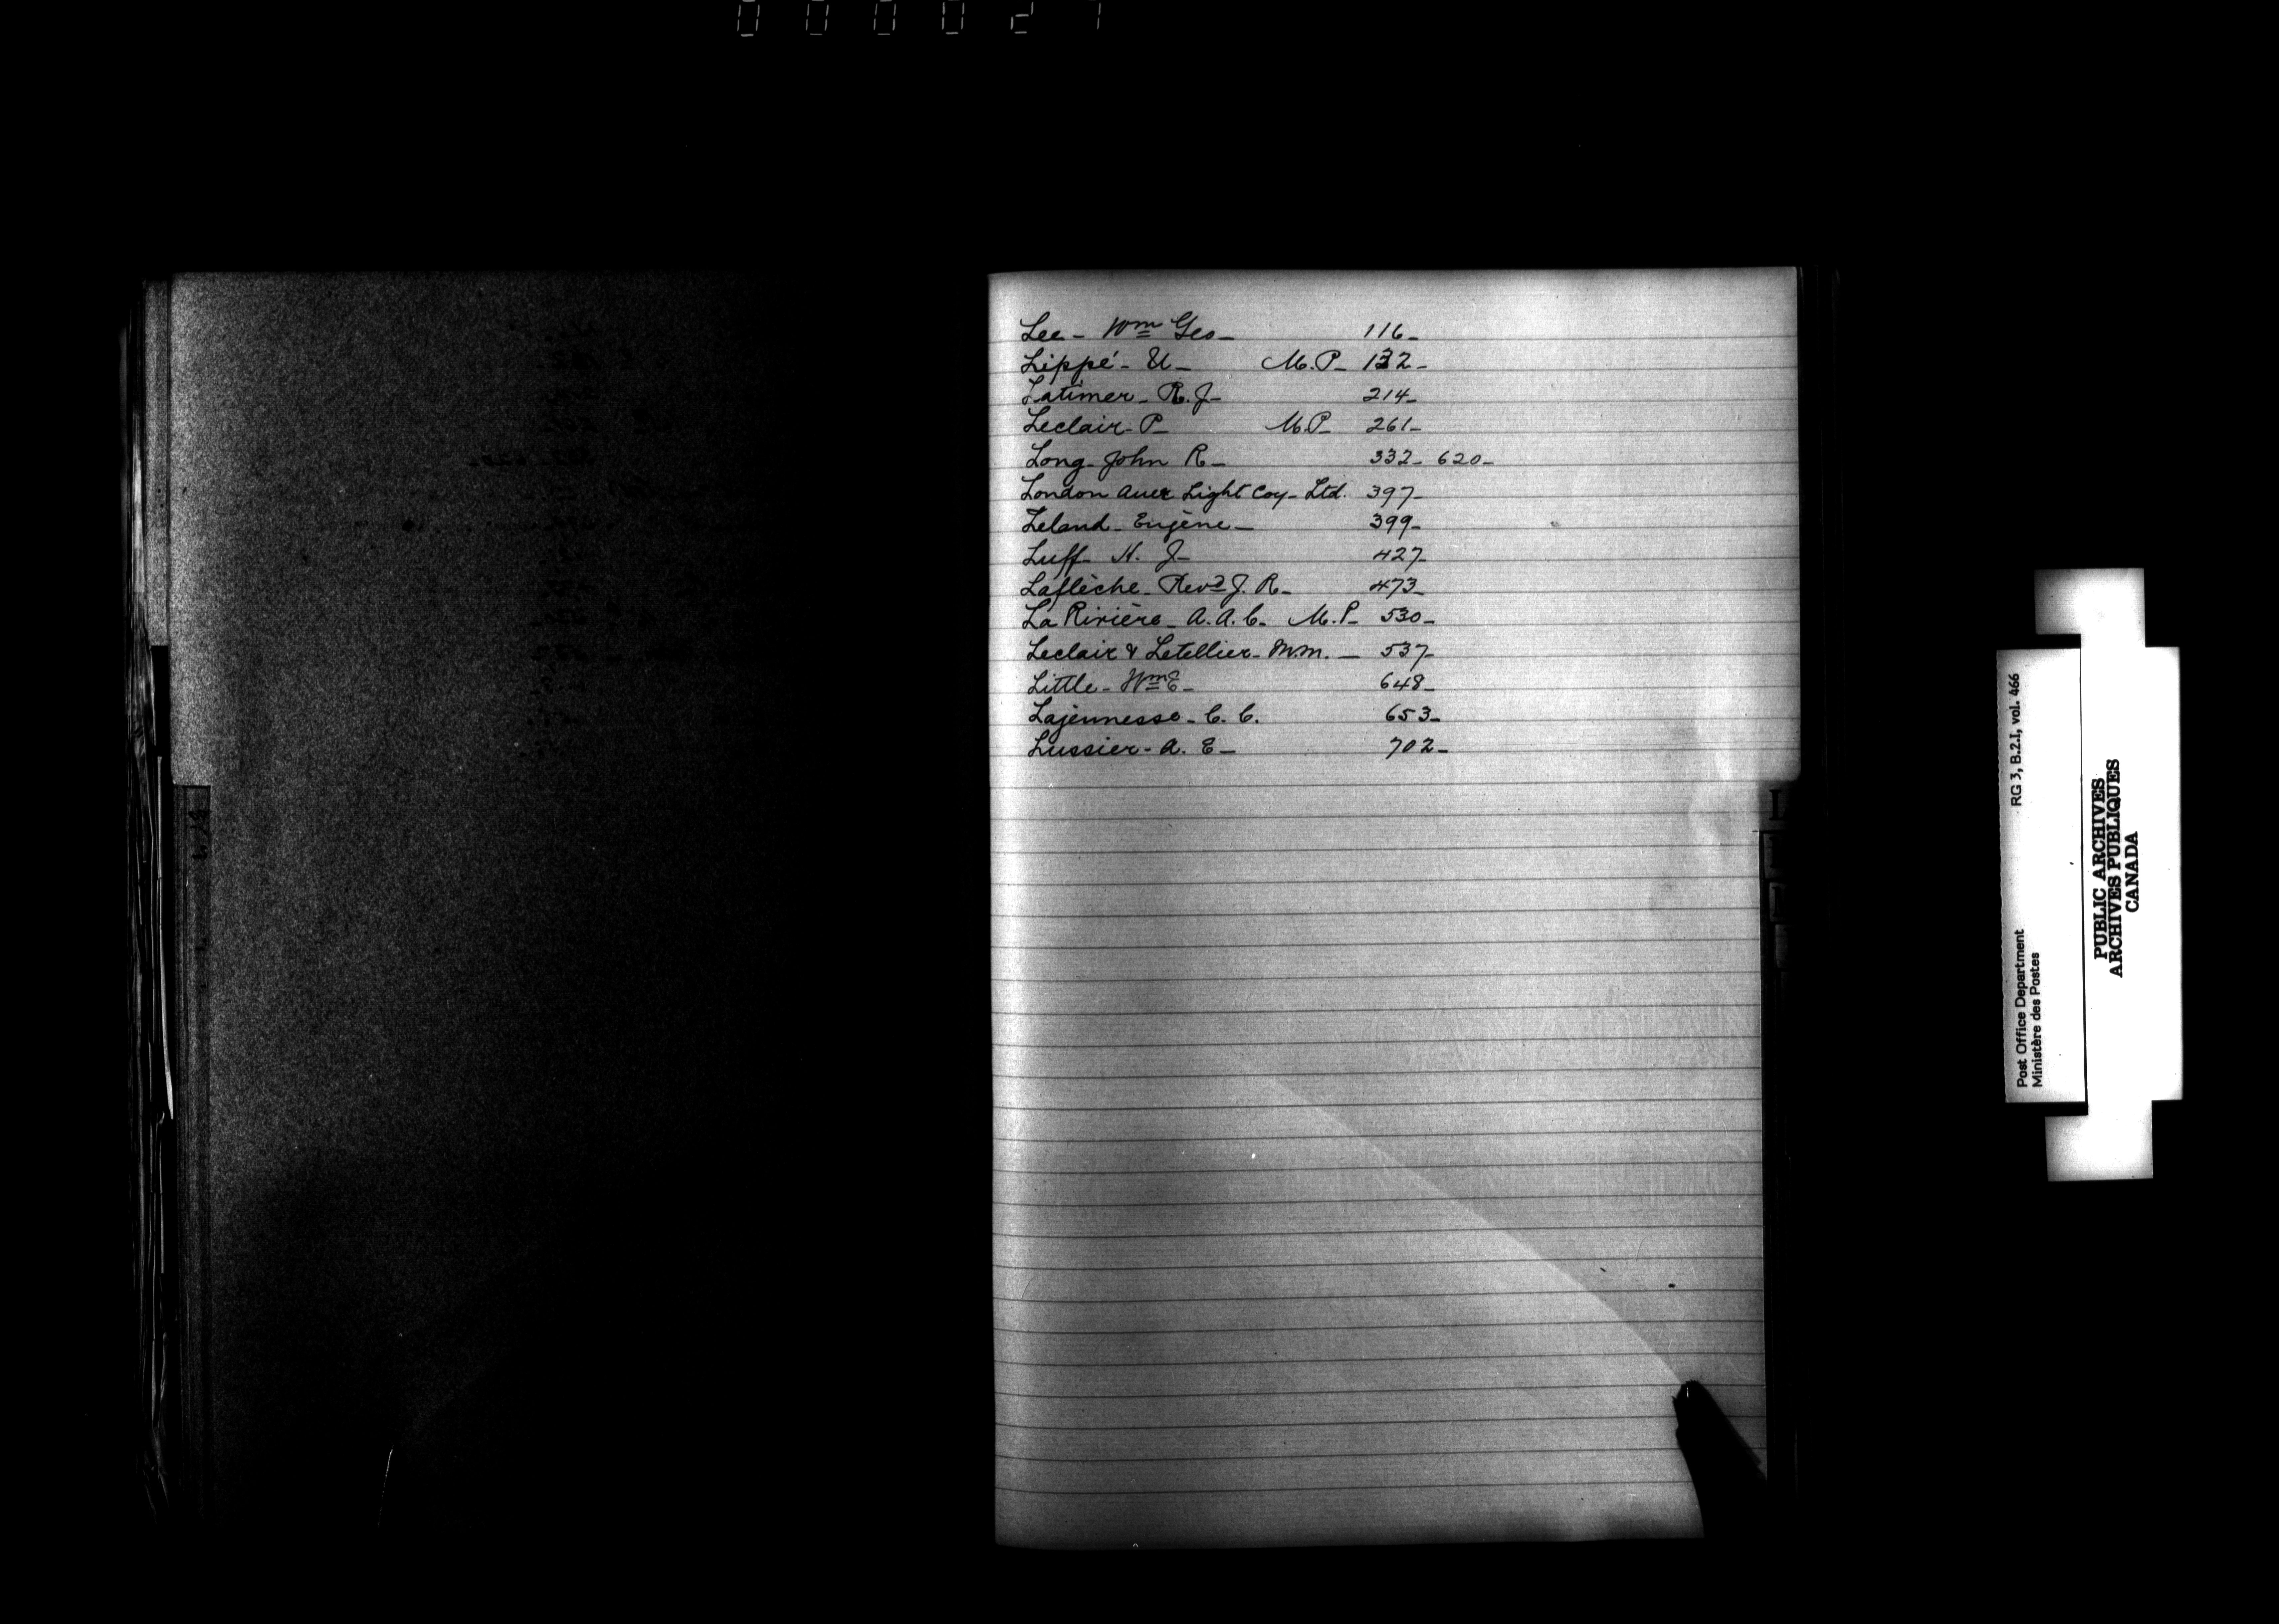 000027
Lee - Wm Geo - 116 -
Lippé - U - M.P - 132 -
Latimer - R. J - 214 -
Leclair - P - M.P - 261 -
Long - John R - 332 - 620 -
London Auer Light Coy - Ltd. 397 -
Leland - Eugène - 399 -
Luff - H. J - 427 -
Laflèche - Revd J. R - 473 -
La Rivière - A. A. C. M.P - 530 -
Leclair & Letellier - M.M. - 537 -
Little - Wm E - 648 -
Lajeunesse - C. C. 653 -
Lussier - A. E - 702 -
L
Post Office Department RG 3, B.2.I, vol. 466
Ministère des Postes
PUBLIC ARCHIVES
ARCHIVES PUBLIQUES
CANADA